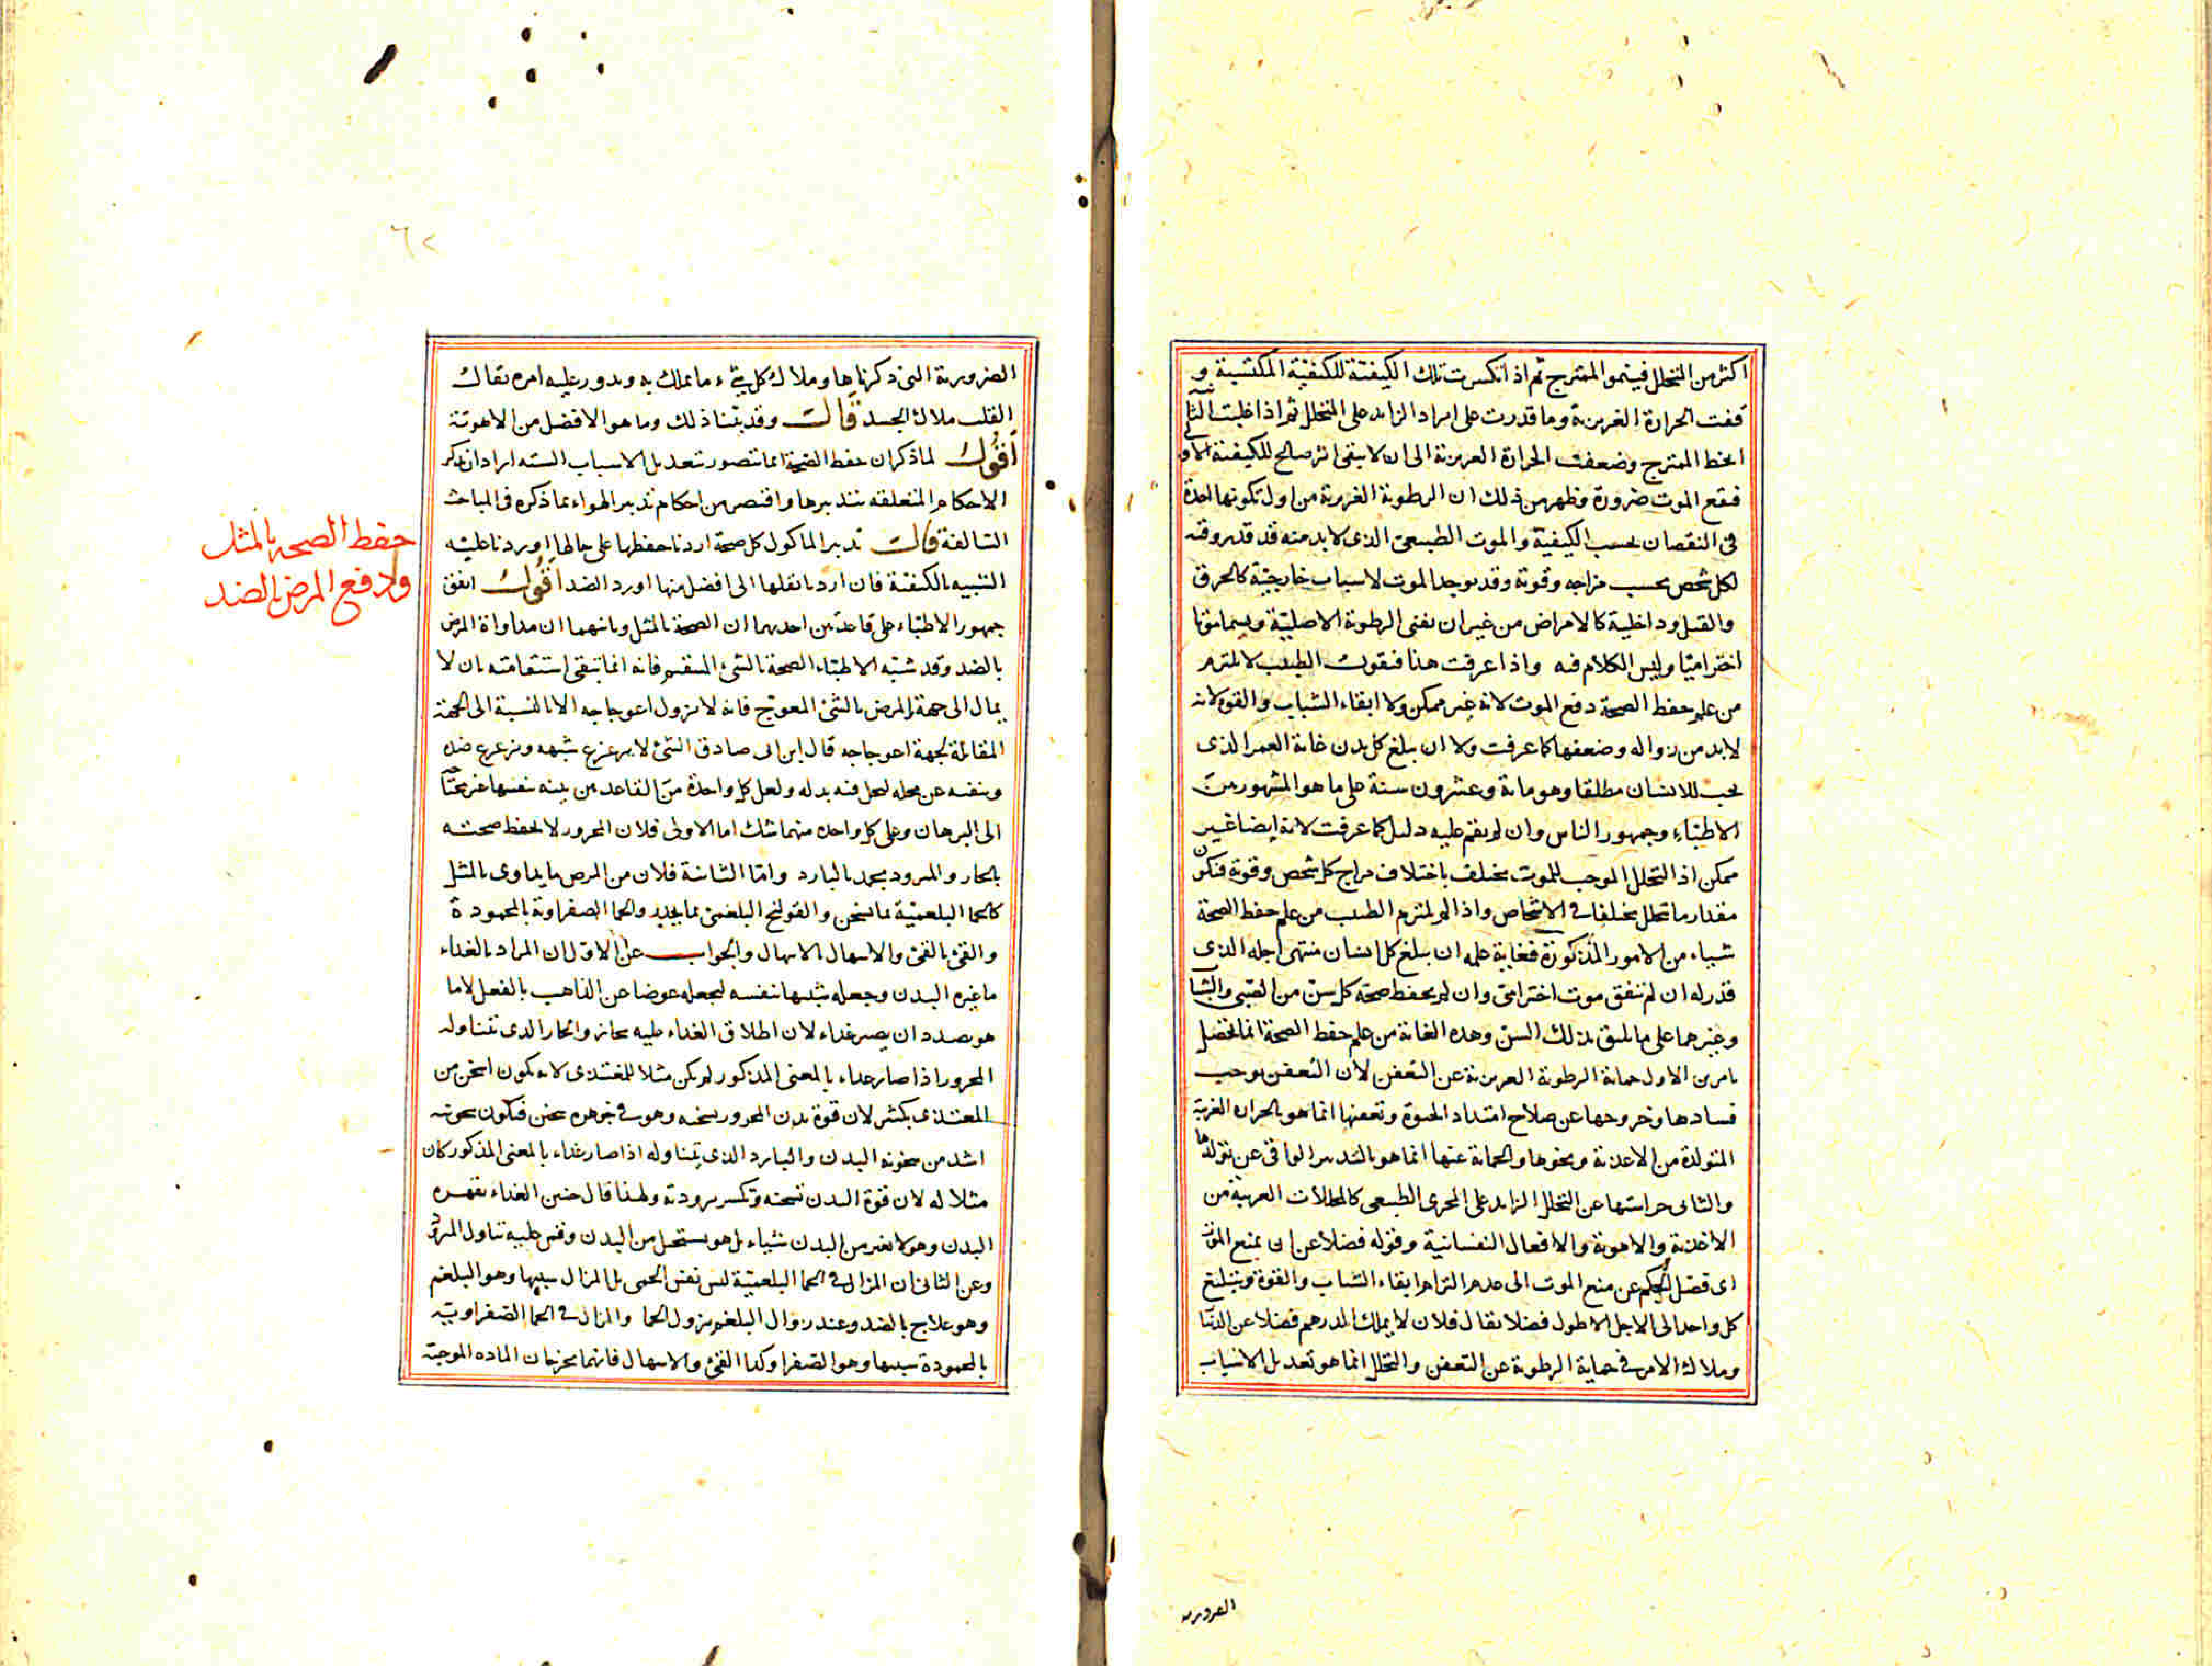 اكثر من التحلل فينمو الممتزج ثم اذا انكسرت تلك الكيفية للكيفية المكتسبة و
قفت الحرارة الغريزية وما قدرت على ايراد الزايد على التحلل ثم اذا غلبت الثا
الخط الممتزج وضعفت الحرارة الغريزية الى ان لا يبقى اثر صالح للكيفية الاو
فيقع الموت ضرورة وظهر من ذلك ان الرطوبة الغريزية من اول تكونها اخذة
فى النقصان بحسب الكيفية والموت الطبيعى الذى لا بد منه قد قدر وقته
لكل شخص بحسب مزاجه وقوته وقد يوجد الموت لاسباب خارجية كالحرق
والقتل وداخلية كالامراض من غير ان يفنى الرطوبة الاصلية ويسمى موتا
اختراميا وليس الكلام فيه واذا عرفت هذا فنقول الطبيب لا يلتزم
من علم حفظ الصحة دفع الموت لانه غير ممكن ولا ابقاء الشباب والقوة لانه
لا بد من زواله وضعفها كما عرفت ولا ان يبلغ كل بدن غاية العمر الذى
يجب للانسان مطلقا وهو مائة وعشرون سنة على ما هو المشهور من
الاطباء وجمهور الناس وان لم يقم عليه دليل كما عرفت لانه ايضا غير
ممكن اذ التحلل الموجب للموت يختلف باختلاف مزاج كل شخص وقوته فيكون
مقدار ما تحلل مختلفا فى الاشخاص واذا لم يلتزم الطبيب من علم حفظ الصحة
شياء من الامور المذكورة فغاية علمه ان يبلغ كل انسان منتهى اجله الذى
قدر له ان لم يتفق موت اخترامى وان لم يحفظ صحة كل سن من الصبى والشا
وغيرهما على ما يليق بذلك السن وهذه الغاية من علم حفظ الصحة انما تحصل
بامرين الاول حماية الرطوبة الغريزية عن التعفن لان التعفن يوجب
فسادها وخروجها عن صلاح امتداد الحيوة وتعفنها انما هو بالحرارة الغريبة
المتولدة من الاغذية ونحوها والحماية عنها انما هو بالتدبير الواقى عن تولدها
والثانى حراستها عن التحلل الزايد على المجرى الطبيعى كالمحللات الغريبة من
الاغذية والاهوية والافعال النفسانية وقوله فضلا عن ان يمنع الموت
اى فضل الحكم عن منع الموت الى عدم التزام ابقاء الشباب والقوة وتبليغ
كل واحد الى الاجل الاطول فضلا يقال فلان لا يملك الدرهم فضلا عن الدنيا
وملاك الامر فى حماية الرطوبة عن التعفن والتحلل انما هو تعديل الاسباب
الضروريه
الضرورية التى ذكرناها وملاك كل شىء ما يملك به ويدور عليه امره يقال
القلب ملاك الجسد قال وقد بينا ذلك وما هو الافضل من الاهوية
اقول لما ذكر ان حفظ الصحة انما يتصور بتعديل الاسباب الستة اراد ان يذكر
الاحكام المتعلقه بتدبيرها واقتصر من احكام تدبير الهواء بما ذكره فى المباحث
السالفة قال تدبير الماكول كل صحة اردنا حفظها على حالها اوردنا عليه
الشبيه بالكيفية فان اردنا نقلها الى افضل منها اورد الضد اقول اتفق
جمهور الاطباء على قاعدتين احديهما ان الصحة بالمثل وثانيهما ان مداواة المرض
بالضد وقد شبه الاطباء الصحة بالشىء المستقيم فانه انما تبقى استقامته بان لا
يمال الى جهة والمرض بالشىء المعوج فانه لا يزول اعوجاجه الا بالنسبة الى الجهة
المقابلة لجهة اعوجاجه قال ابن ابى صادق الشىء لا يزعزع شبهه ويزعزع ضده
وينفيه عن محله ليحل فيه بدله ولعل كل واحدة من القاعدتين بينة بنفسها غير محتا
الى البرهان وعلى كل واحدة منهما شك اما الاولى فلان المحرور لا يحفظ صحته
بالحار والمبرود يحمد بالبارد واما الثانية فلان من المرض ما يداوى بالمثل
كالحما البلغمية بما يسخن والقولنج البلغمى بما يجد والحما الصفراوية بالمحمودة
والقىء بالقىء والاسهال بالاسهال والجواب عن الاول ان المراد بالغذاء
ما غيره البدن وجعله شبيها بنفسه ليجعله عوضا عن الذاهب بالفعل لا ما
هو بصدد ان يصير غذاء لان اطلاق الغذاء عليه مجاز والحار الذى يتناوله
المحرور اذا صار غذاء بالمعنى المذكور لم يكن مثلا للمغتذى لانه يكون اسخن من
المغتذى بكثير لان قوة بدن المحرور يسخنه وهو فى جوهره سخن فيكون سخونته
اشد من سخونة البدن والبارد الذى يتناوله اذا صار غذاء بالمعنى المذكور كان
مثلا له لان قوة البدن تسخنه وتكسر برودته ولهذا قال حنين الغذاء يقهره
البدن وهو لا يغير من البدن شياء بل هو يستحيل من البدن وقس عليه تناول المبرود
وعن الثانى ان المزال فى الحما البلغمية ليس نفس الحمى بل المزال سببها وهو البلغم
وهو علاج بالضد وعند زوال البلغم يزول الحما والمزال فى الحما الصفراوية
بالمحمودة سببها وهو الصفرا وكذا القىء والاسهال فانهما يخرجان الماده الموجبة
حفظ الصحه بالمثل
ودفع المرض بالضد
٦٢